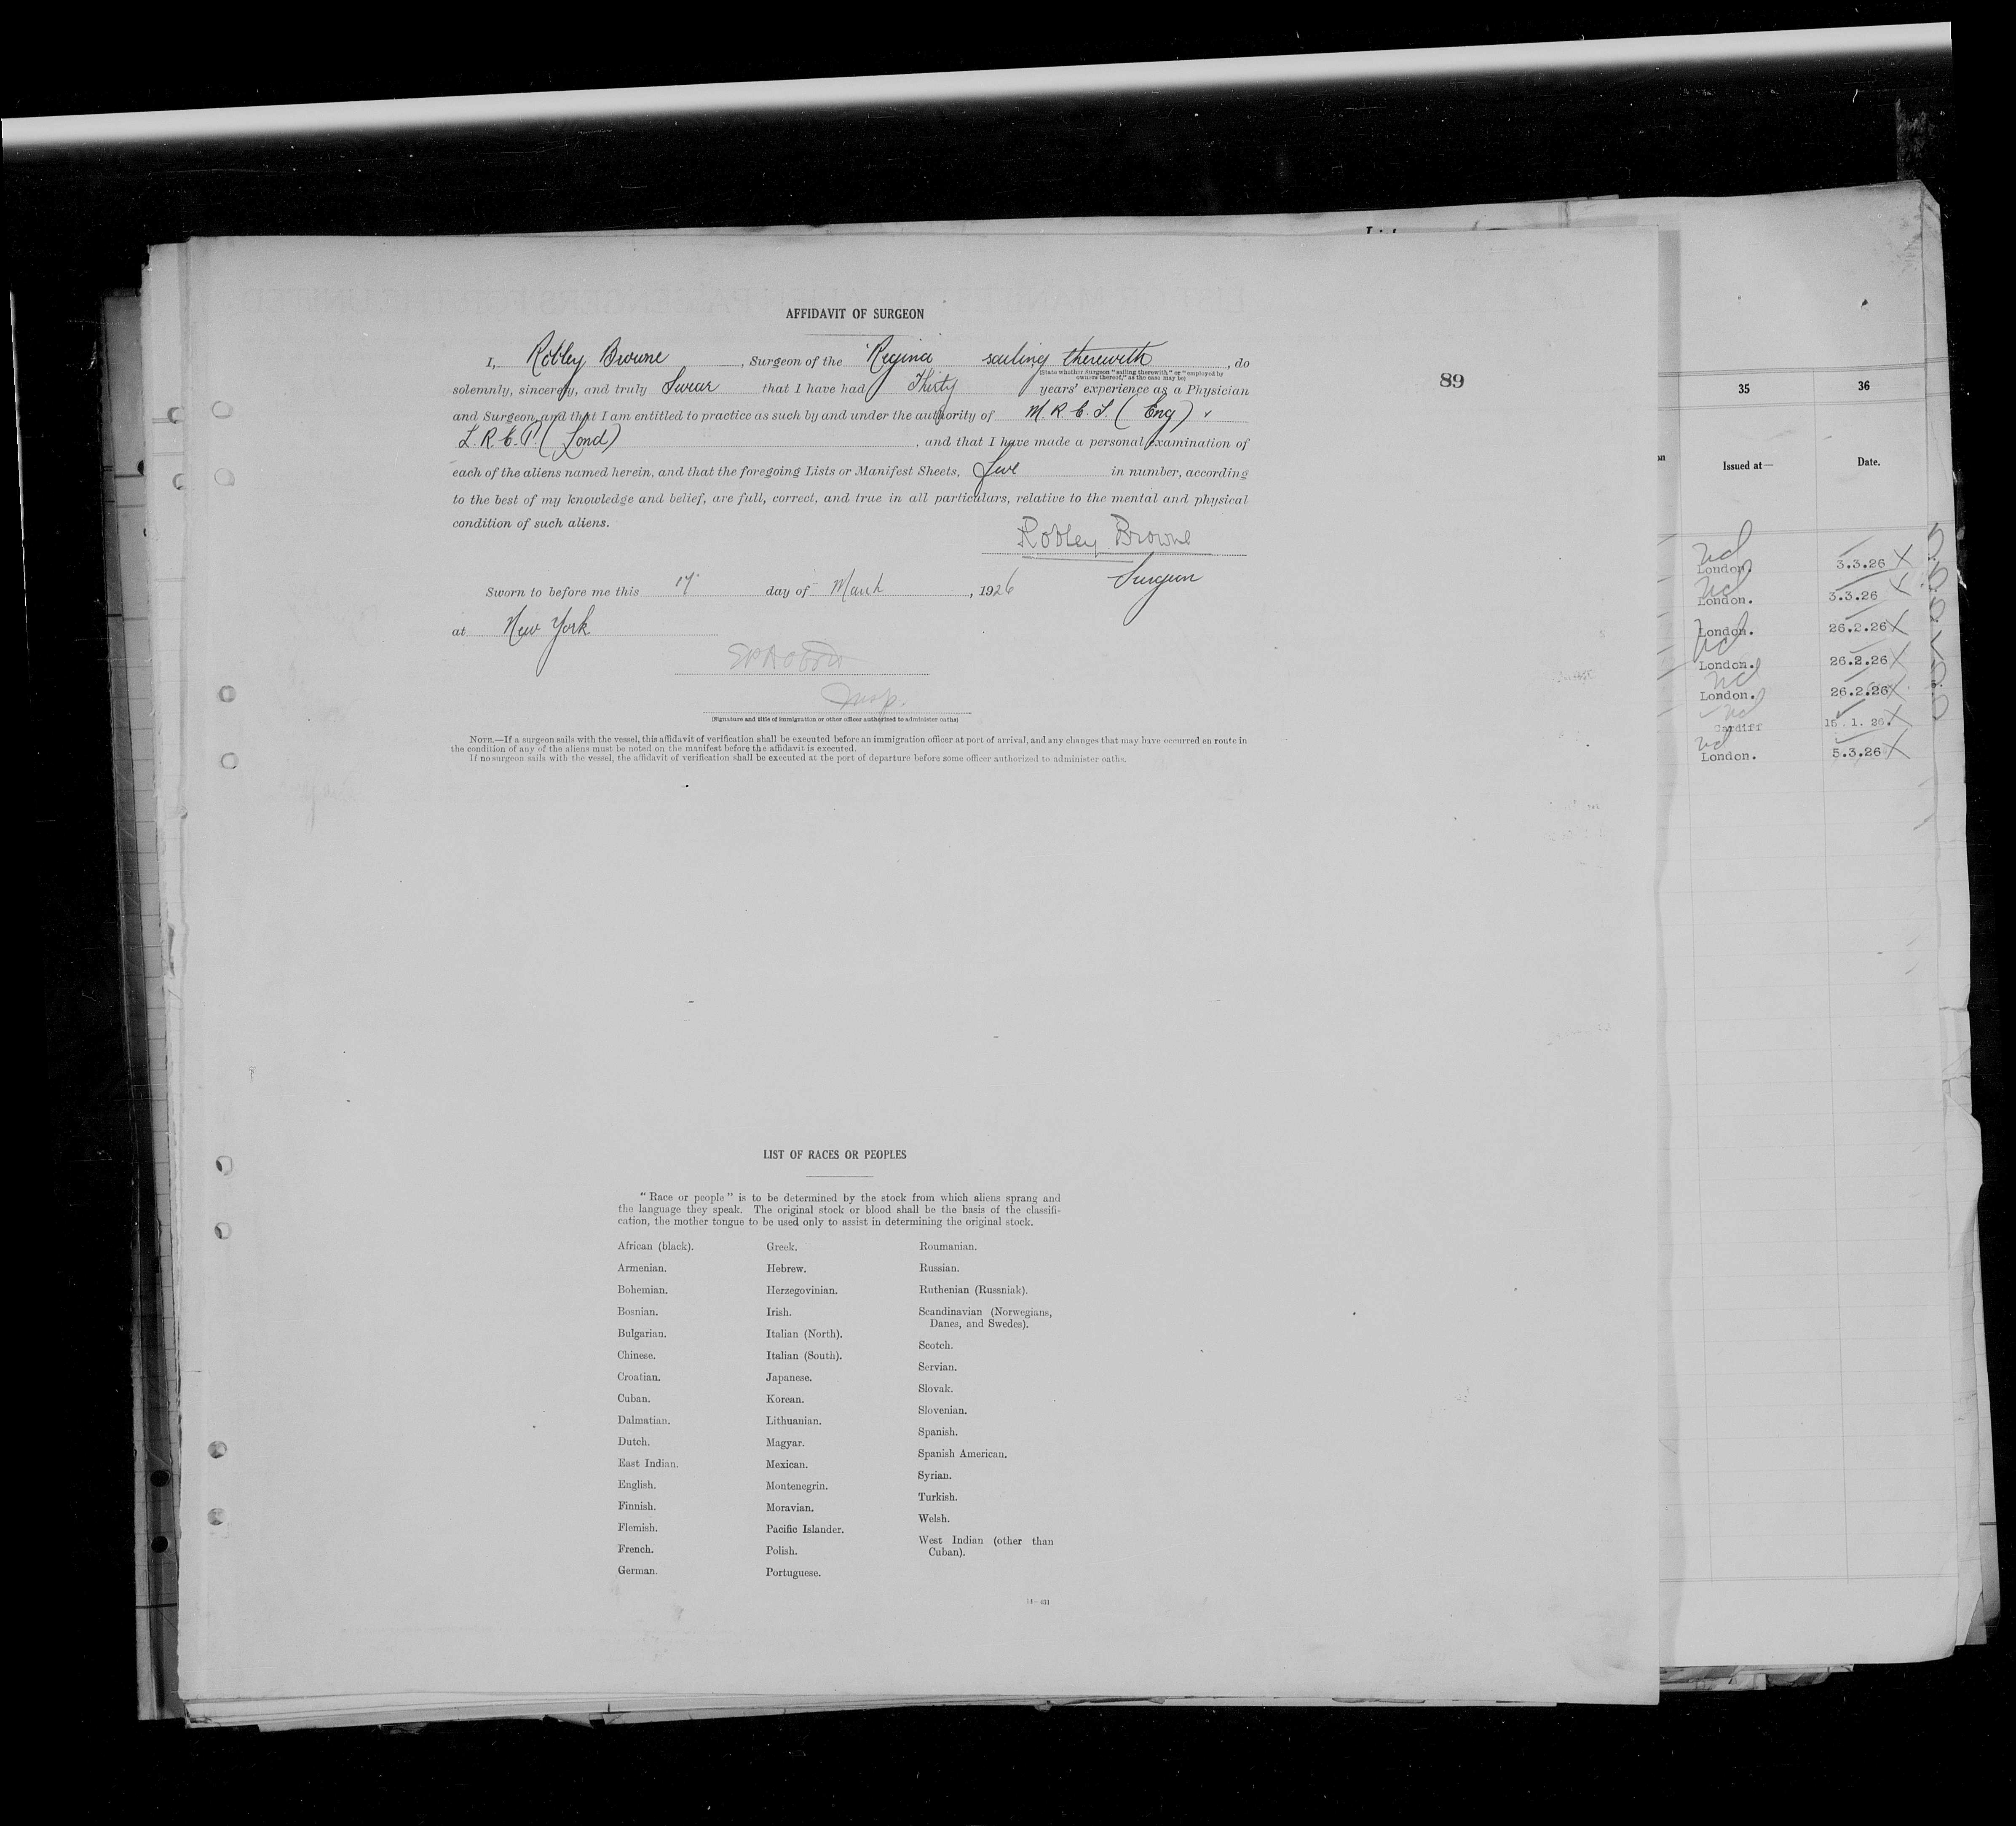 AFFIDAVIT OF SURGEON
I, Robley Browne, Surgeon of the "Regina sailing therewith, do
(State whether Surgeon "sailing therewith" or "employed by
owners thereof," as the case may be)
solemnly, sincerely, and truly Swear that I have had Thirty years' experience as a Physician
and Surgeon and that I am entitled to practice as such by and under the authority of M.R.C.S. (Eng)
L.R.C.P. (Lond), and that I have made a personal examination of
each of the aliens named herein, and that the foregoing Lists or Manifest Sheets, five in number, according
to the best of my knowledge and belief, are full, correct, and true in all particulars, relative to the mental and physical
condition of such aliens.
Robley Browne
Surgeon
Sworn to before me this 17 day of March, 1926
at New York
Insp.
(Signature and title of immigration or other officer authorized to administer oaths)
NOTE.—If a surgeon sails with the vessel, this affidavit of verification shall be executed before an immigration officer at port of arrival, and any changes that may have occurred en route in
the condition of any of the aliens must be noted on the manifest before the affidavit is executed.
If no surgeon sails with the vessel, the affidavit of verification shall be executed at the port of departure before some officer authorized to administer oaths.
LIST OF RACES OR PEOPLES
"Race or people" is to be determined by the stock from which aliens sprang and
the language they speak. The original stock or blood shall be the basis of the classifi-
cation, the mother tongue to be used only to assist in determining the original stock.
African (black).
Armenian.
Bohemian.
Bosnian.
Bulgarian.
Chinese.
Croatian.
Cuban.
Dalmatian.
Dutch.
East Indian.
English.
Finnish.
Flemish.
French.
German.
Greek.
Hebrew.
Herzegovinian.
Irish.
Italian (North).
Italian (South).
Japanese.
Korean.
Lithuanian.
Magyar.
Mexican.
Montenegrin.
Moravian.
Pacific Islander.
Polish.
Portuguese.
Roumanian.
Russian.
Ruthenian (Russniak).
Scandinavian (Norwegians,
Danes, and Swedes).
Scotch.
Servian.
Slovak.
Slovenian.
Spanish.
Spanish American.
Syrian.
Turkish.
Welsh.
West Indian (other than
Cuban).
14—431
89
35 36
Issued at— Date.
London. 3.3.26
London. 3.3.26
London. 26.2.26
London. 26.2.26
London. 26.2.26
Cardiff 15.1.26.
London. 5.3.26